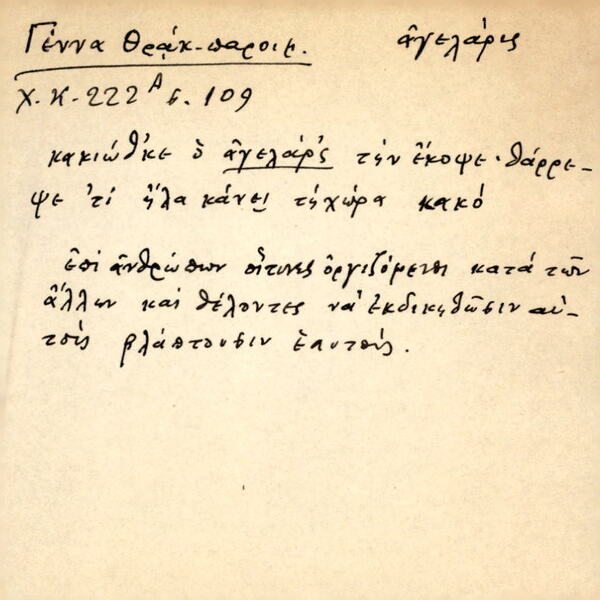 Γέννα Θρᾴκ-παροιμ. ἀγελάρις
Χ.Κ-222Α σ. 109
κακιώθ'κε ὁ ἀγελάρ'ς τὴν ἔκοψε· θάρρε-
ψε 'τί ἤλα κάνει τὴ χώρα κακό
ἐπὶ ἀνθρώπων οἵτινες ὀργιζόμενοι κατὰ τῶν
ἄλλων καὶ θέλοντες νὰ ἐκδικηθῶσιν αὐ-
τοὺς βλάπτουσιν ἑαυτούς.